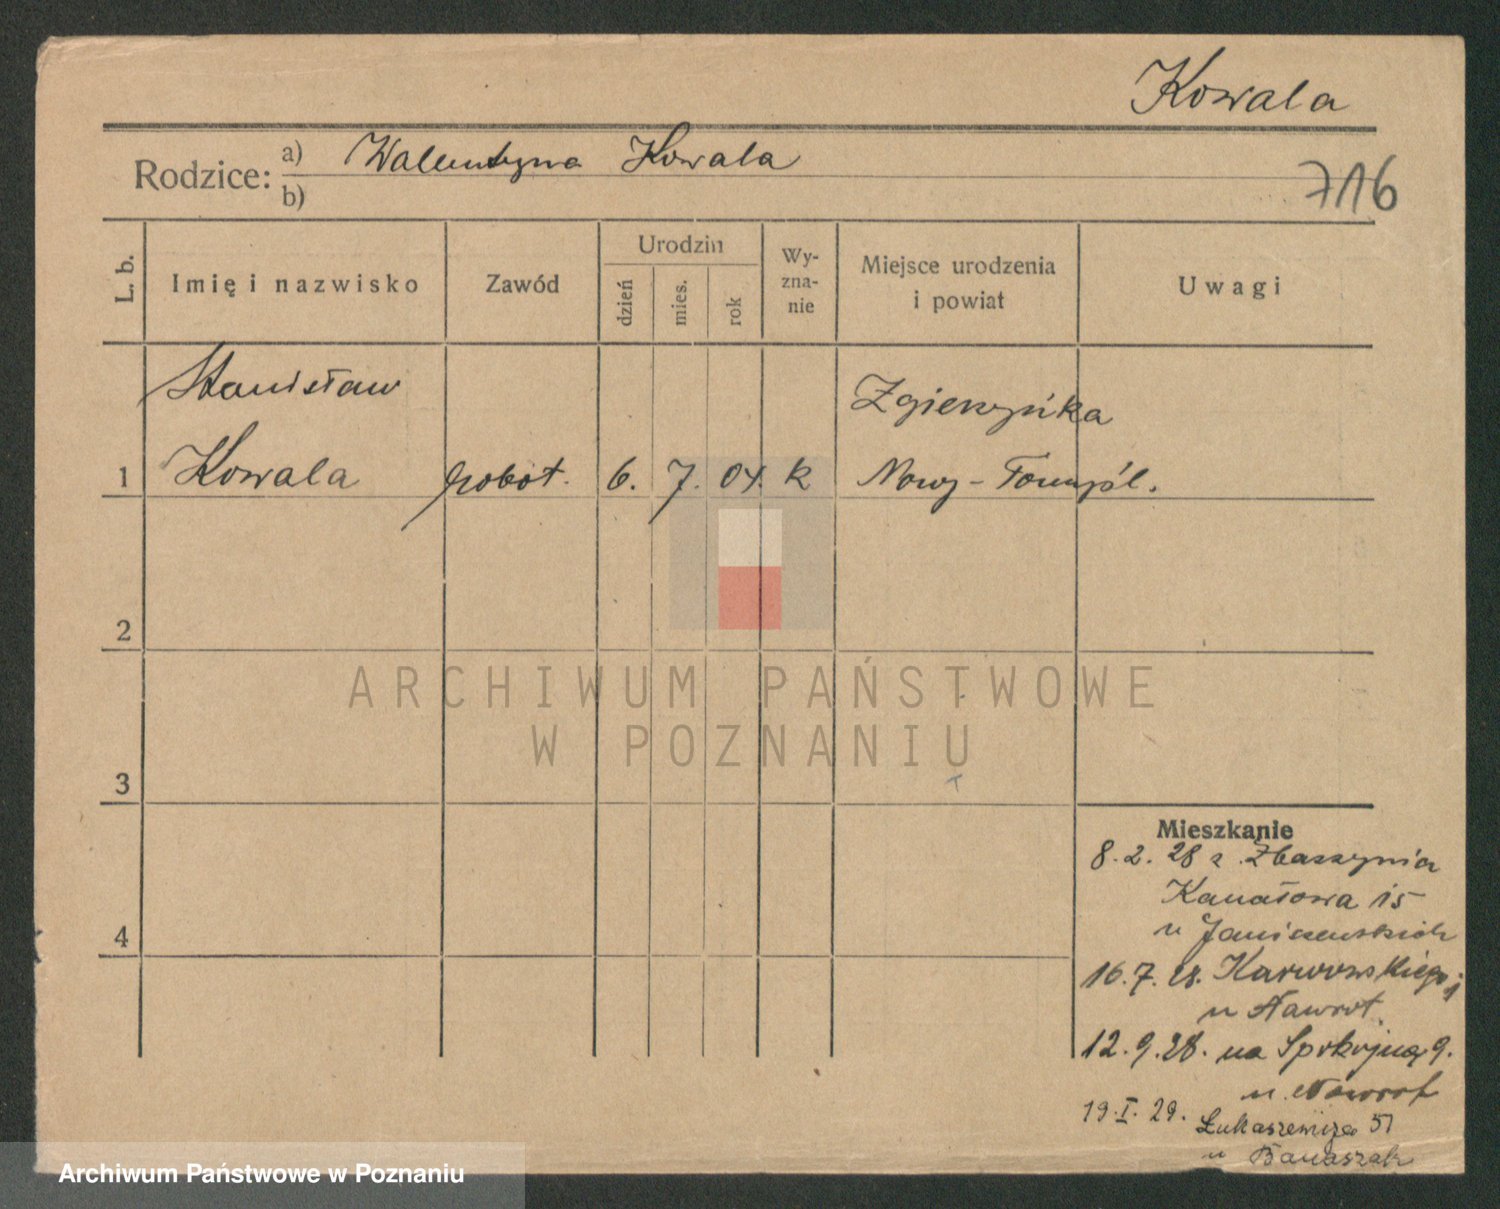 Kowala
Rodzice: a) Walentyna Kowala
b)
716
L. b.
Imię i nazwisko
Zawód
Urodzin
dzień
mies.
rok
Wy-
zna-
nie
Miejsce urodzenia
i powiat
Uwagi
Stanisław
Zgierzynka
1 Kowala robot. 6. 7. 04. k Nowy-Tomyśl.
2
ARCHIWUM PAŃSTWOWE
W POZNANIU
3
Mieszkanie
8.2.28 z Zbąszynia
Kanałowa 15
u Janiszewskich
4
16.7.28. Karwowskiego
u Nawrot
12.9.28. na Spokojną 9.
u Nawrot
19.I.29. Łukaszewicza 51
u Banaszak
Archiwum Państwowe w Poznaniu